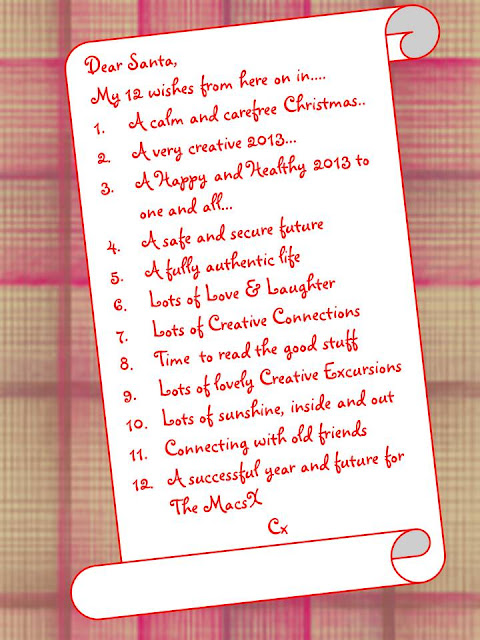 Dear Santa,
My 12 wishes from here on in....
1. A calm and carefree Christmas..
2. A very creative 2013...
3. A Happy and Healthy 2013 to
one and all...
4. A safe and secure future
5. A fully authentic life
6. Lots of Love & Laughter
7. Lots of Creative Connections
8. Time to read the good stuff
9. Lots of lovely Creative Excursions
10. Lots of sunshine, inside and out
11. Connecting with old friends
12. A successful year and future for
The MacsX
Cx